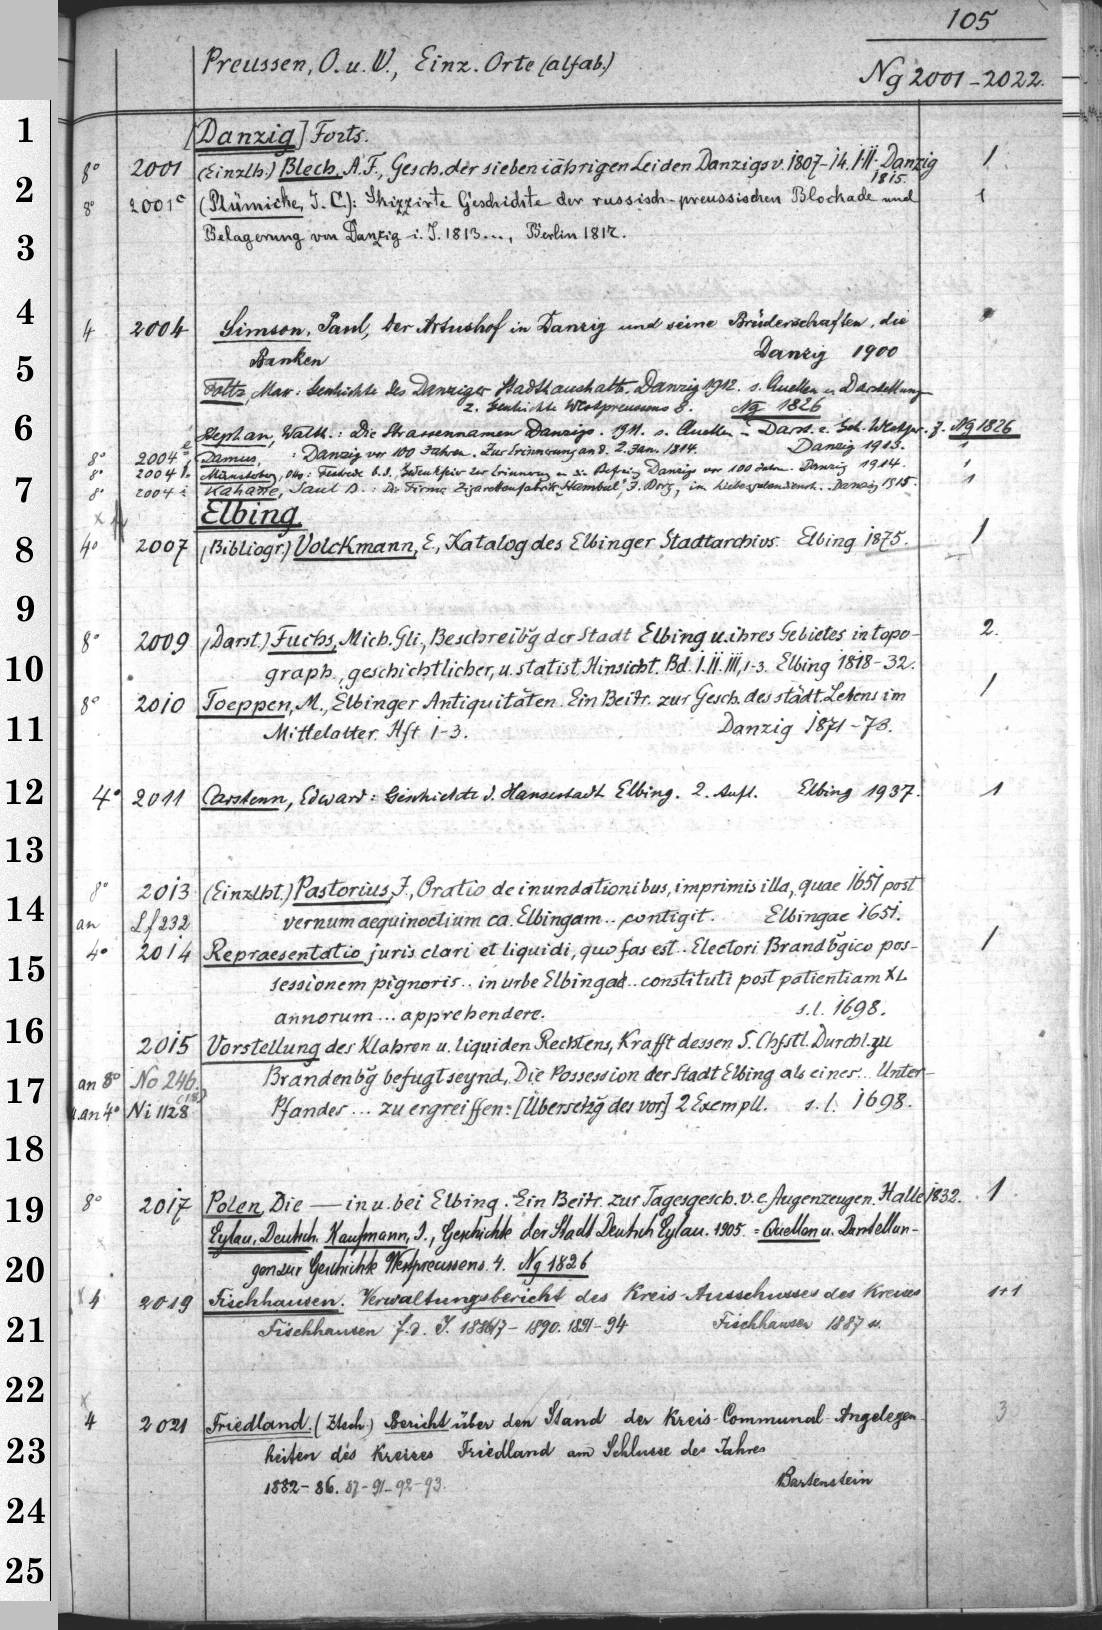 105
Preussen, O. u. W., Einz. Orte (alfab.)
Ng 2001-2022.
1
[Danzig] Forts.
8° 2001 (Einzlh.) Blech, A. F., Gesch. der siebenjährigen Leiden Danzigs v. 1807-14. I.II. Danzig 1
1815.
2
8° 2001c (Plümicke, J. C.): Skizzirte Geschichte der russisch-preussischen Blockade und 1
3
Belagerung von Danzig i. J. 1813..., Berlin 1817.
4
4 2004 Simson, Paul, Der Artushof in Danzig und seine Brüderschaften, die
5
Banken Danzig 1900
Foltz, Max: Geschichte des Danziger Stadthaushalts. Danzig 1912. s. Quellen u. Darstellung
z. Geschichte Westpreussens 8. Ng 1826
6
Stephan, Walth.: Die Strassennamen Danzigs. 1911. s. Quellen - Darst. z. Gesch. Westpr. 7. Ng 1826
8° 2004 Damus, : Danzig vor 100 Jahren. Zur Erinnerung an d. 2. Jan. 1814. Danzig 1913. 1
8° 2004 h. Münsterberg, Otto: Zur Erinnerung an die Danzigs vor 100 Jahren. Danzig 1914. 1
7
8° 2004 i Kahane, Paul B.: Die Firma Zigarettenfabrik "Stambul", J. Borg, Danzig 1915. 1
Elbing
8
4° 2007 (Bibliogr.) Volckmann, E., Katalog des Elbinger Stadtarchivs. Elbing 1875. 1
9
8° 2009 (Darst.) Fuchs, Mich. Gli., Beschreibg der Stadt Elbing u. ihres Gebietes in topo- 2.
10
graph., geschichtlicher, u. statist. Hinsicht. Bd. I.II.III,1-3. Elbing 1818-32.
8° 2010 Toeppen, M., Elbinger Antiquitäten. Ein Beitr. zur Gesch. des städt. Lebens im 1
11
Mittelalter. Hft 1-3. Danzig 1871-73.
12
4° 2011 Carstenn, Edward: Geschichte d. Hansestadt Elbing. 2. Aufl. Elbing 1937. 1
13
8° 2013 (Einzlht.) Pastorius, J., Oratio de inundationibus, imprimis illa, quae 1651 post
14
an Lf 232 vernum aequinoctium ca. Elbingam.. contigit. Elbingae 1651.
4° 2014 Repraesentatio juris clari et liquidi, quo fas est.. Electori Brandbgico pos- 1
15
sessionem pignoris.. in urbe Elbingae.. constituti post patientiam XL
annorum... apprehendere. s. l. 1698.
16
2015 Vorstellung des Klahren u. liquiden Rechtens, Krafft dessen S. Chfstl. Durchl. zu
17
an 8° No 246. Brandenbg befugt seynd, Die Possession der Stadt Elbing als eines... Unter-
(18)
u. an 4° Ni 1128 Pfandes... zu ergreiffen: [Übersetzg des vor.] 2 Exempll. s. l. 1698.
18
19
8° 2017 Polen, Die — in u. bei Elbing. Ein Beitr. zur Tagesgesch. v. e. Augenzeugen. Halle 1832. 1
Eylau, Deutsch. Kaufmann, J., Geschichte der Stadt Deutsch Eylau. 1905. = Quellen u. Darstellun-
20
gen zur Geschichte Westpreussens. 4. Ng 1826
x 4 2019 Fischhausen. Verwaltungsbericht des Kreis-Ausschusses des Kreises 1+1
21
Fischhausen f. d. J. 1886/7-1890. 1891-94 Fischhausen 1887 u.
22
x
4 2021 Friedland. (Ztsch.) Bericht über den Stand der Kreis-Communal-Angelegen- 3
23
heiten des Kreises Friedland am Schlusse des Jahres
1882-86. 87-91-92-93. Bartenstein
24
25